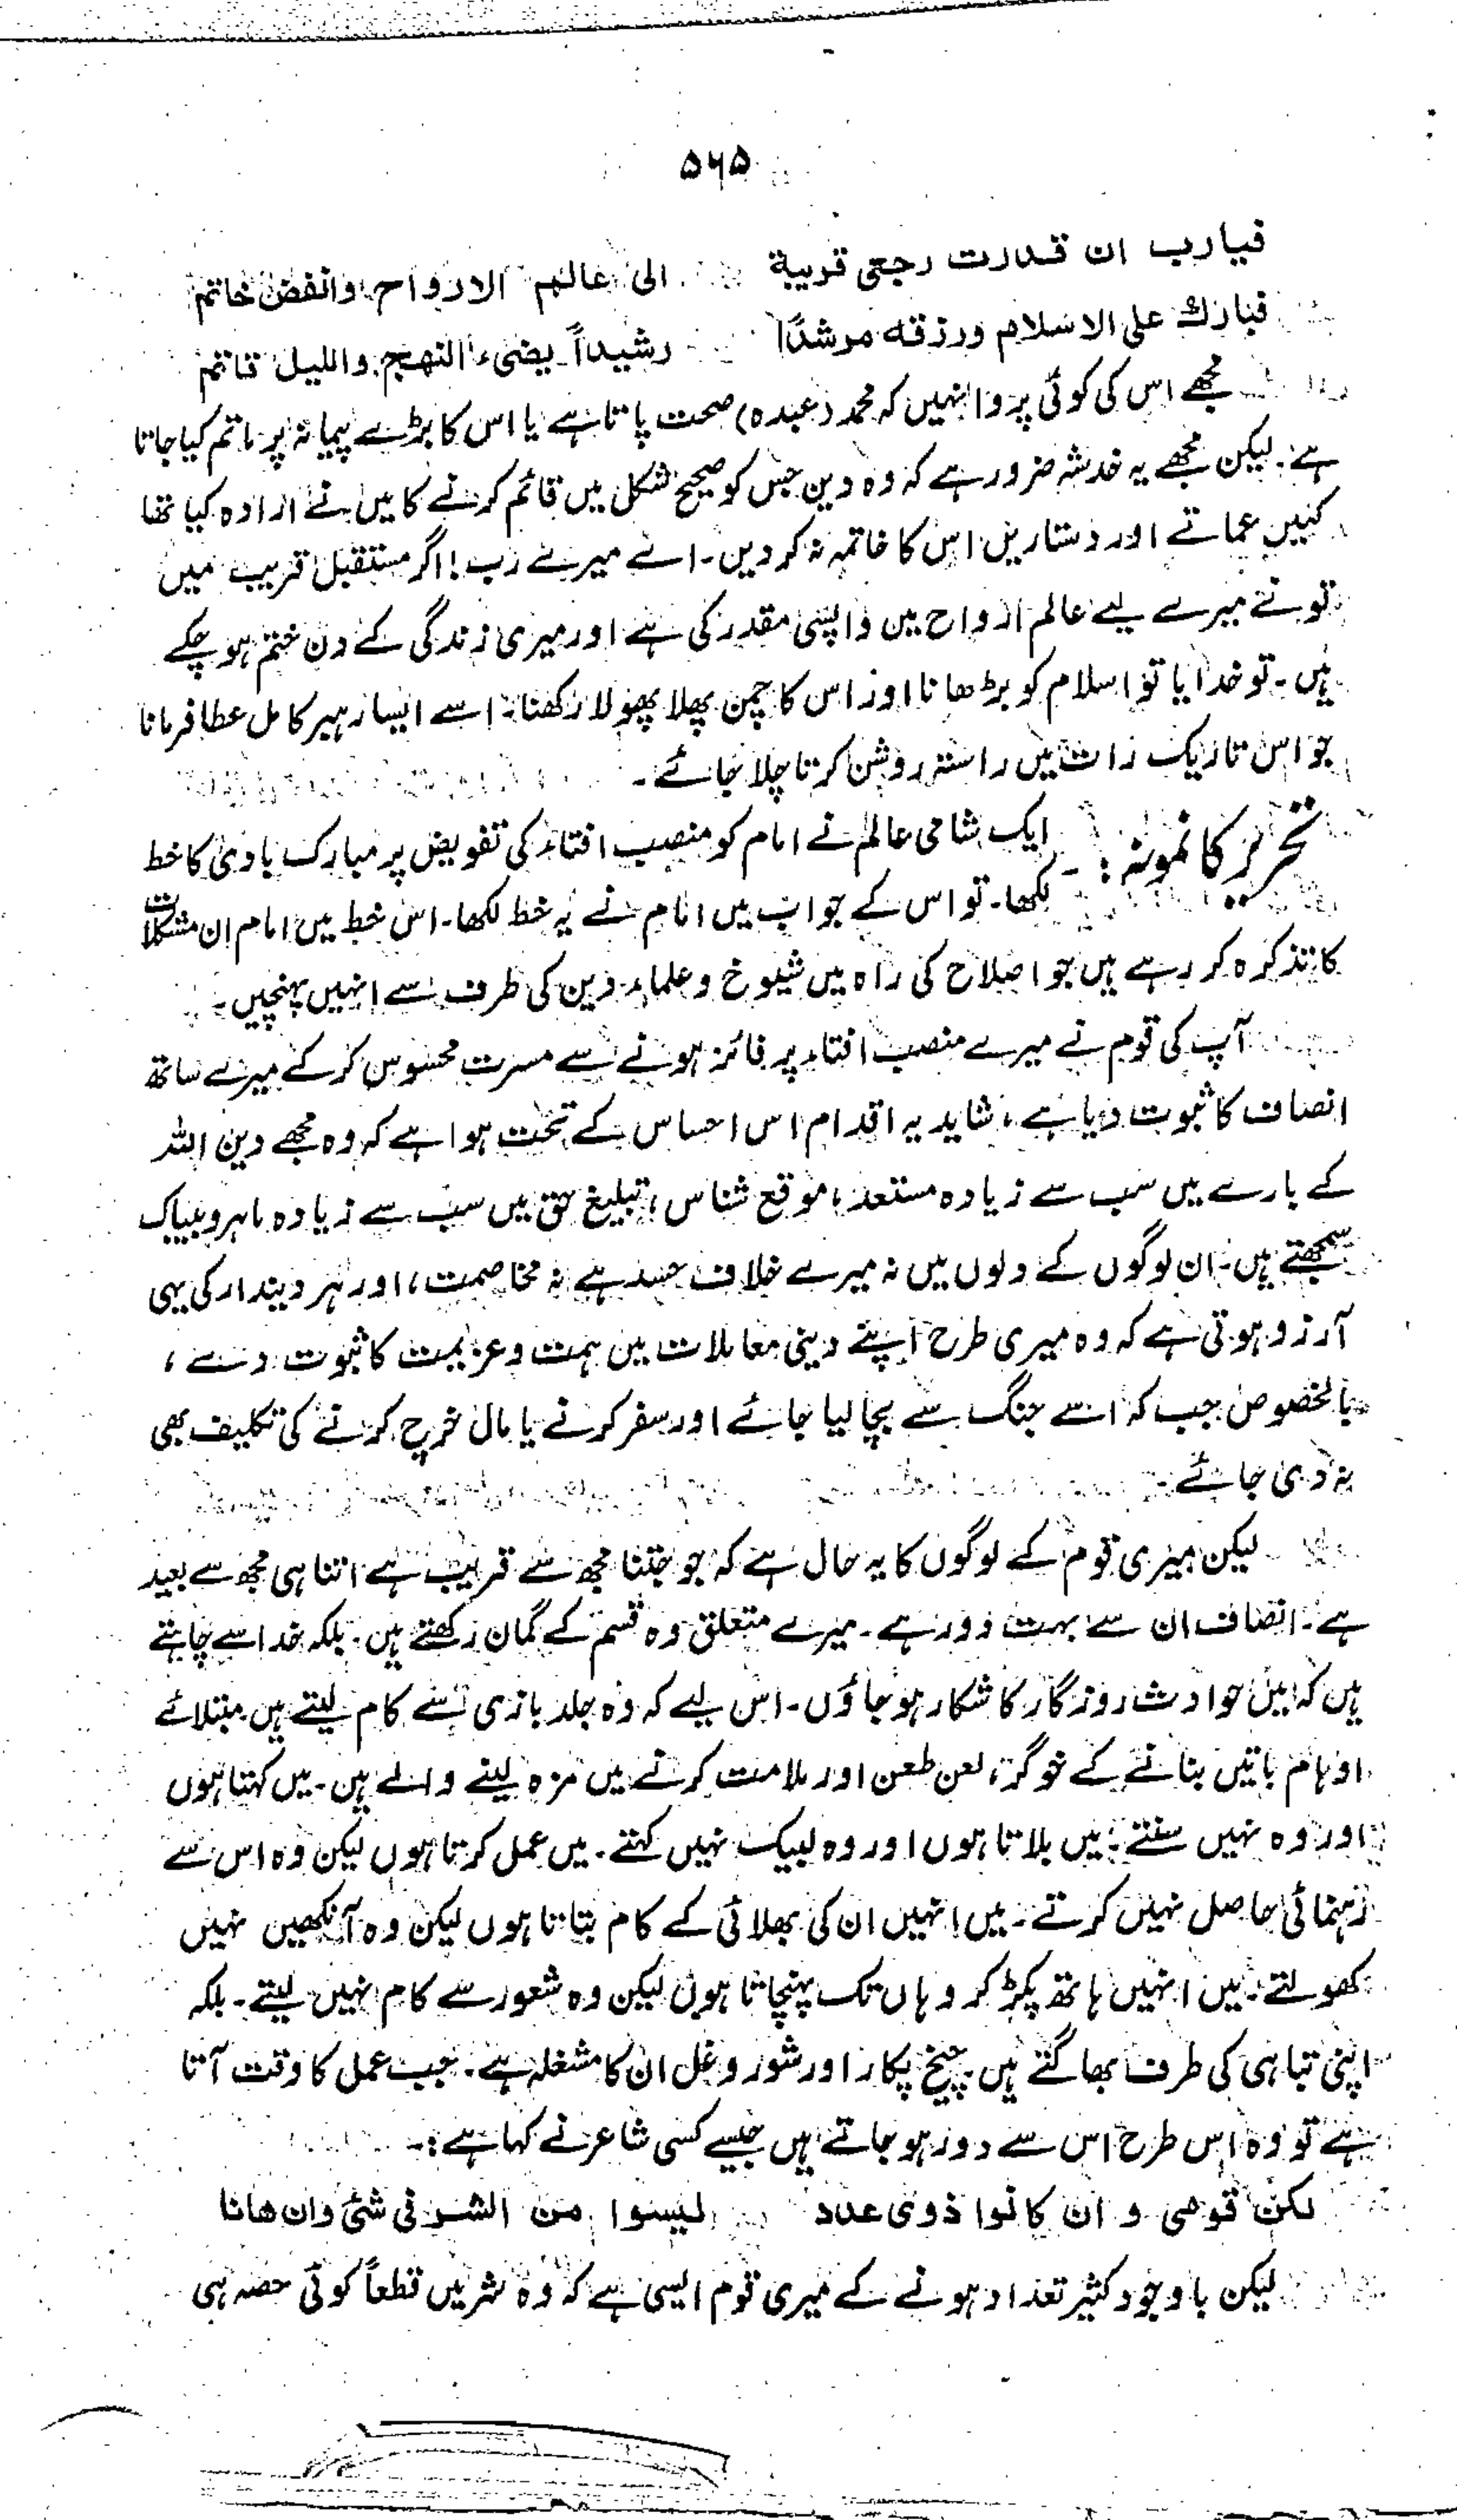 ۵۶۵
فیارب ان قدرت رجعی قریبة الی عالم الارواح وانفض خاتم
فبارك علی الاسلام ورزقه مرشدًا رشیداً یضیء النهج واللیل قاتم
مجھے اس کی کوئی پروا نہیں کہ محمد (عبدہ) صحت پاتا ہے یا اس کا بڑے پیمانہ پر ماتم کیا جاتا
ہے۔ لیکن مجھے یہ خدشہ ضرور ہے کہ وہ دین جس کو صحیح شکل میں قائم کرنے کا میں نے ارادہ کیا تھا
کہیں عمامے اور دستاریں اس کا خاتمہ نہ کر دیں۔ اے میرے رب! اگر مستقبل قریب میں
تو نے میرے لیے عالم ارواح میں واپسی مقدر کی ہے اور میری زندگی کے دن ختم ہو چکے
ہیں۔ تو خدایا تو اسلام کو بڑھانا اور اس کا چمن پھلا پھولا رکھنا، اسے ایسا رہبر کامل عطا فرمانا
جو اس تاریک رات میں راستہ روشن کرتا چلا جائے۔
تحریر کا نمونہ :- ایک شامی عالم نے امام کو منصب افتاء کی تفویض پر مبارک بادی کا خط
لکھا۔ تو اس کے جواب میں امام نے یہ خط لکھا۔ اس خط میں امام ان مشکلات
کا تذکرہ کر رہے ہیں جو اصلاح کی راہ میں شیوخ و علماء دین کی طرف سے انہیں پہنچیں۔
آپ کی قوم نے میرے منصب افتاء پر فائز ہونے سے مسرت محسوس کر کے میرے ساتھ
انصاف کا ثبوت دیا ہے، شاید یہ اقدام اس احساس کے تحت ہوا ہے کہ وہ مجھے دین اللہ
کے بارے میں سب سے زیادہ مستعد، موقع شناس، تبلیغ حق میں سب سے زیادہ ماہر و بیباک
سمجھتے ہیں۔ ان لوگوں کے دلوں میں نہ میرے خلاف حسد ہے نہ مخاصمت، اور ہر دیندار کی یہی
آرزو ہوتی ہے کہ وہ میری طرح اپنے دینی معاملات میں ہمت و عزیمت کا ثبوت دے،
بالخصوص جب کہ اسے جنگ سے بچا لیا جائے اور سفر کرنے یا مال خرچ کرنے کی تکلیف بھی
نہ دی جائے۔
لیکن میری قوم کے لوگوں کا یہ حال ہے کہ جو جتنا مجھ سے قریب ہے اتنا ہی مجھ سے بعید
ہے۔ انصاف ان سے بہت دور ہے۔ میرے متعلق وہ قسم کے گمان رکھتے ہیں۔ بلکہ خدا سے چاہتے
ہیں کہ میں حوادث روزگار کا شکار ہو جاؤں۔ اس لیے کہ وہ جلد بازی سے کام لیتے ہیں مبتلائے
اوہام باتیں بنانے کے خوگر، لعن طعن اور ملامت کرنے میں مزہ لینے والے ہیں۔ میں کہتا ہوں
اور وہ نہیں سنتے۔ میں بلاتا ہوں اور وہ لبیک نہیں کہتے۔ میں عمل کرتا ہوں لیکن وہ اس سے
رہنمائی حاصل نہیں کرتے۔ میں انہیں ان کی بھلائی کے کام بتاتا ہوں لیکن وہ آنکھیں نہیں
کھولتے۔ میں انہیں ہاتھ پکڑ کر وہاں تک پہنچاتا ہوں لیکن وہ شعور سے کام نہیں لیتے۔ بلکہ
اپنی تباہی کی طرف بھاگتے ہیں۔ چیخ پکار اور شور و غل ان کا مشغلہ ہے۔ جب عمل کا وقت آتا
ہے تو وہ اس طرح اس سے دور ہو جاتے ہیں جیسے کسی شاعر نے کہا ہے:۔
لکن قومی و ان کانوا ذوی عدد لیسوا من الشر فی شئ وان هانا
لیکن باوجود کثیر تعداد ہونے کے میری قوم ایسی ہے کہ وہ شر میں قطعاً کوئی حصہ ہی